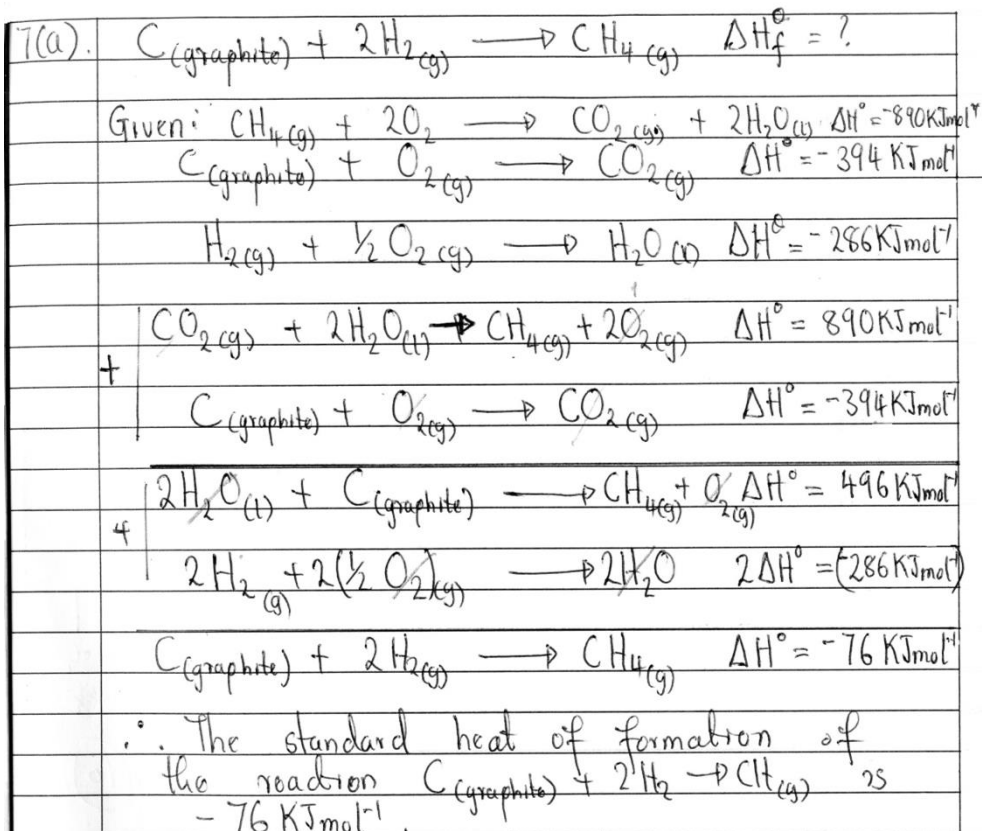 7(a). C(graphite) + 2H₂(g) → CH₄(g) ΔH_f^θ = ?
Given: CH₄(g) + 2O₂ → CO₂(g) + 2H₂O(l) ΔH° = -890KJmol⁻¹
C(graphite) + O₂(g) → CO₂(g) ΔH^θ = -394 KJmol⁻¹
H₂(g) + ½ O₂(g) → H₂O(l) ΔH^θ = -286KJmol⁻¹
CO₂(g) + 2H₂O(l) → CH₄(g) + 2O₂(g) ΔH° = 890KJmol⁻¹
+
C(graphite) + O₂(g) → CO₂(g) ΔH° = -394KJmol⁻¹
2H₂O(l) + C(graphite) → CH₄(g) + O₂(g) ΔH° = 496KJmol⁻¹
+
2H₂(g) + 2(½ O₂)(g) → 2H₂O 2ΔH° = (-286KJmol⁻¹)
C(graphite) + 2H₂(g) → CH₄(g) ΔH° = -76 KJmol⁻¹
∴ The standard heat of formation of
the reaction C(graphite) + 2H₂ → CH(g) is
- 76 KJmol⁻¹.